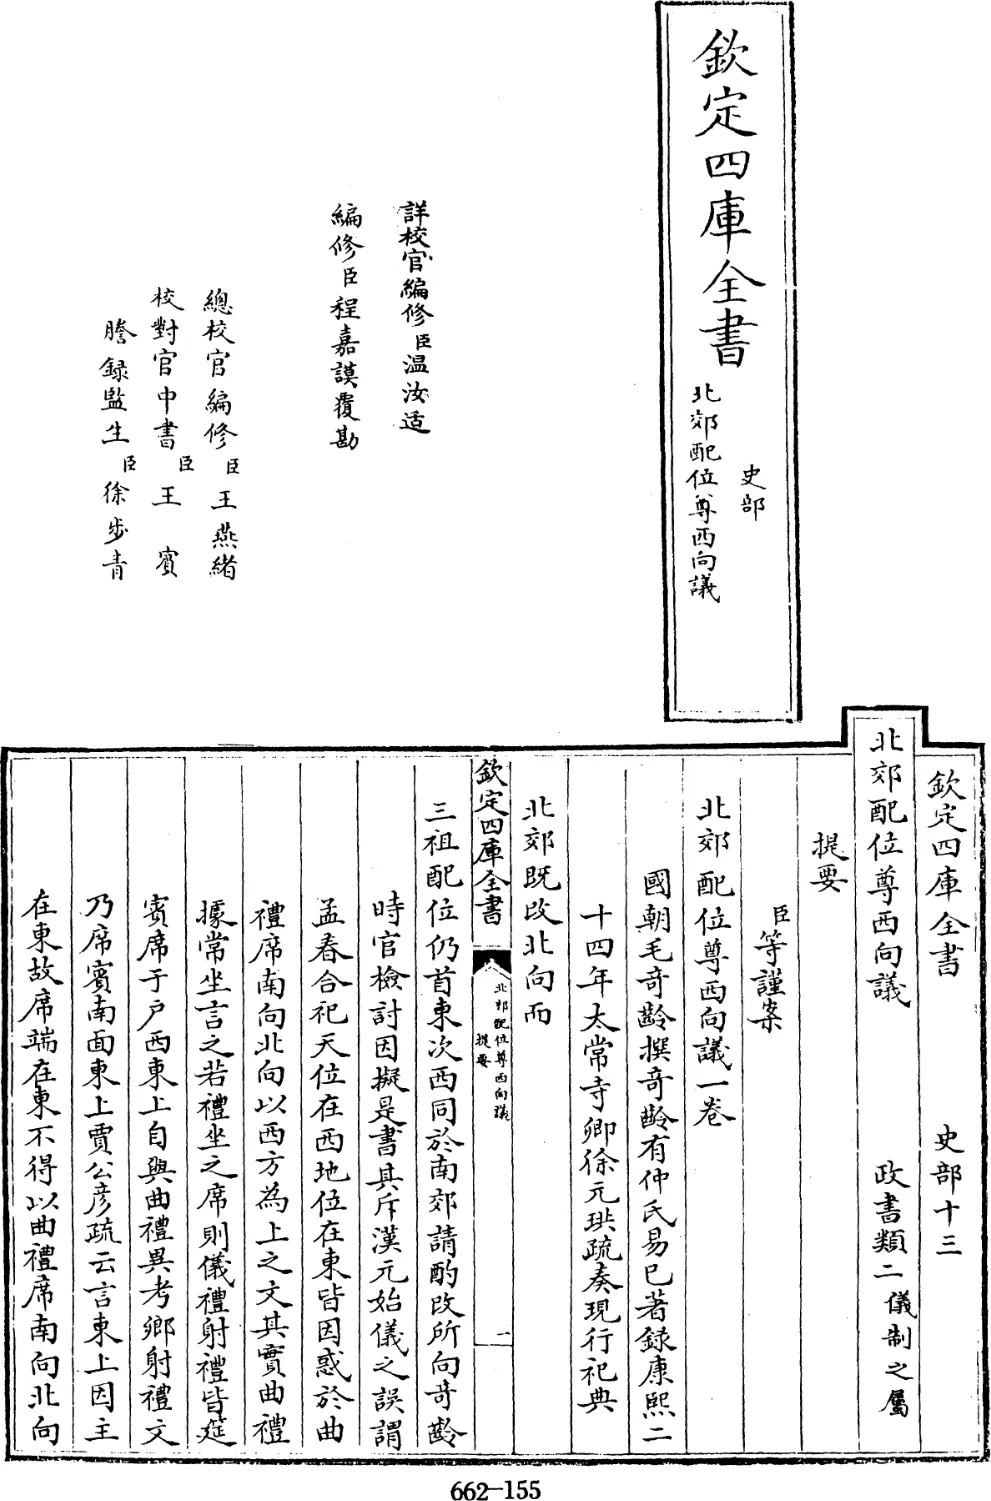 欽定四庫全書
史部
北郊配位尊西向議
詳校官編修臣温汝适
編修臣程嘉謨覆勘
總校官編修臣王燕緒
校對官中書臣王賓
謄錄監生臣徐步青
欽定四庫全書 史部十三
北郊配位尊西向議 政書類二儀制之屬
提要
臣等謹案
北郊配位尊西向議一卷
國朝毛奇齡撰奇齡有仲氏易已著錄康熙二
十四年太常寺卿徐元珙疏奏現行祀典
北郊既改北向而
欽定四庫全書
北郊配位尊西向議
提要
一
三祖配位仍首東次西同於南郊請酌改所向奇齡
時官檢討因擬是書其斥漢元始儀之誤謂
孟春合祀天位在西地位在東皆因惑於曲
禮席南向北向以西方為上之文其實曲禮
據常坐言之若禮坐之席則儀禮射禮皆筵
賓席于戶西東上自與曲禮異考鄉射禮文
乃席賓南面東上賈公彥疏云言東上因主
在東故席端在東不得以曲禮席南向北向
662-155